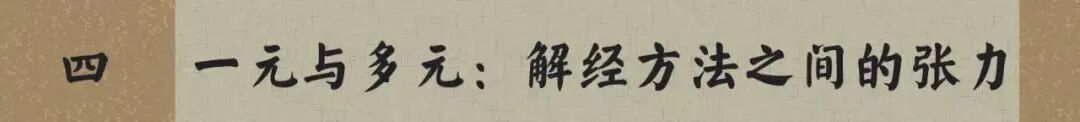 四 一元与多元：解经方法之间的张力